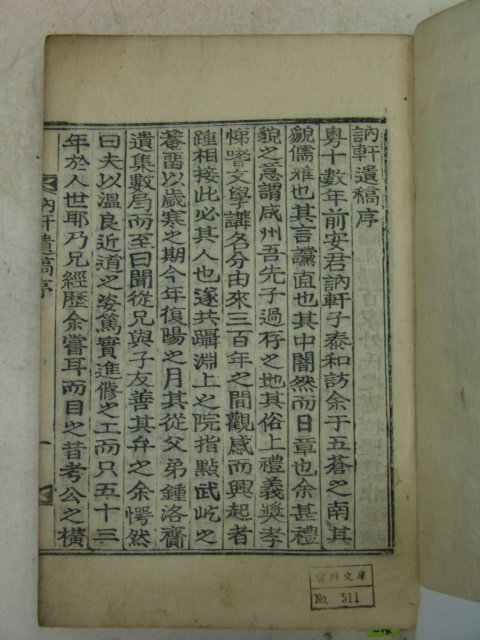 訥軒遺稿序
粤十數年前安君訥軒子泰和訪余于五蒼之南其
貌儒雅也其言讜直也其中闇然而日章也余甚禮
貌之意謂咸州吾先子過存之地其俗上禮義奬孝
悌嗜文學講名分由來三百年之間觀感而興起者
踵相接此必其人也遂共躡淵上之院指點武屹之
菴留以歲寒之期今年復陽之月其從父弟鍾洛齎
遺集數局而至曰聞從兄與子友善其弁之余愕然
曰夫以溫良近道之姿篤實進修之工而只五十三
年於人世耶乃兄經歷余嘗耳而目之昔考公之橫
訥軒遺稿序
一
雷川文庫
No. 511